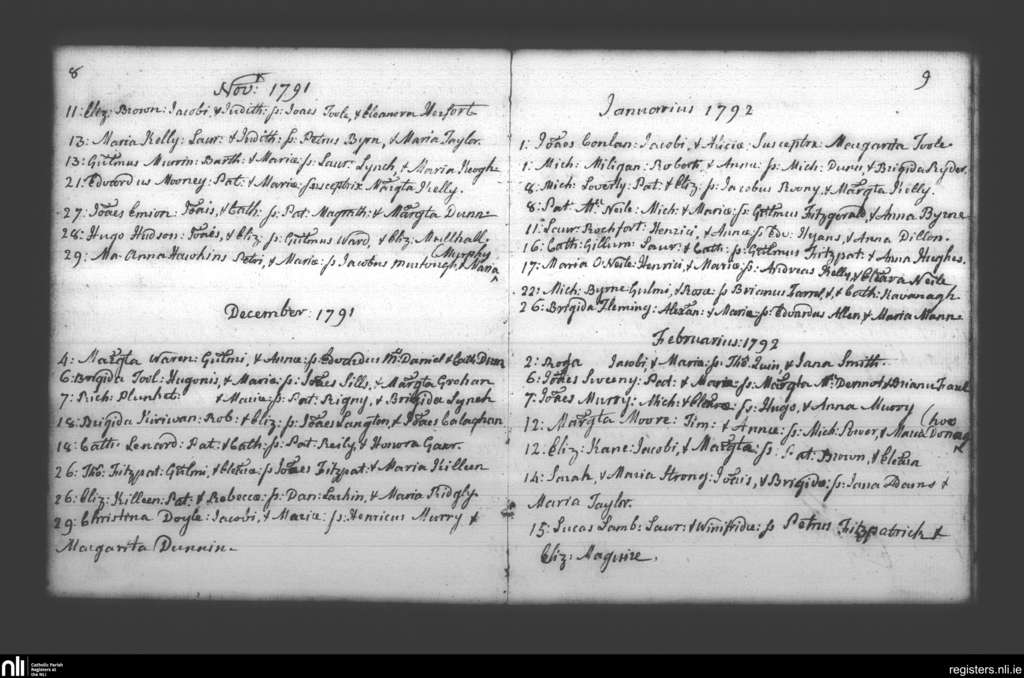 8
Novr 1791
11: Eliz: Brown: Jacobi, & Judith: s: Joaes Toole, & Eleanora Hesfort
13: Maria Kelly: Laur: & Judith: s: Petrus Byrn, & Maria Taylor.
13: Gulmus Murrin: Barth: & Mariæ: s: Laur: Lynch, & Maria Keogh
21: Edvardus Mooney: Pat: & Mariæ: susceptrix Margta Kelly.
27: Joaes Emson: Joais, & Cath: s: Pat: Magrath: & Margta Dunn
28: Hugo Hudson: Joaes, & Eliz: s: Gulmus Ward, & Eliz: Mullhall.
29: Ma. Anna Hawkins Petri, & Mariæ: s: Jacobus Murtough, & Maria (Murphy
December: 1791
4: Margta Waren: Gulmi, & Annæ: s: Edvardus Mc Daniel & Cath: Dunn
6: Brigida Tool: Hugonis, & Mariæ: s: Joaes Sills, & Margta Geehan
7: Rich: Plunket: & Mariæ: s: Pat: Rigny, & Brigida Lynch
18: Brigida Kiriwan: Rob: & Eliz: s: Joaes Langton, & Joaes Calaghan
18: Cath: Lenard: Pat: & Cath: s: Pat: Reily, & Honora Gawr.
26: Tho: Fitzpat: Gulmi, & Eleæ: s: Joaes Fitzpat: & Maria Killeen
26: Eliz: Killeen: Pat: & Rebecca: s: Dan: Larkin, & Maria Ridgly
29: Christina Doyle: Jacobi, & Mariæ: s: Henricus Murry &
Margarita Dunnin.
9
Januarius 1792
1: Joaes Conlan: Jacobi, & Aliciæ: Susceptrx Margarita Toole
1: Mich: Miligan: Roberti, & Annæ: s: Mich: Dunn, & Brigida Ryder
8: Mich: Loverly: Pat: & Eliz: s: Jacobus Roony, & Margta Kelly.
8: Pat: Mc Neile: Mich: & Mariæ: s: Gulmus Fitzgerald, & Anna Byrne
11: Laur: Rochfort: Henrici, & Annæ: s: Edv: Hyans, & Anna Dillon.
16: Cath: Gillum: Laur: & Cath: s: Gulmus Fitzpat: & Anna Hughes.
17: Maria O Neile: Henrici, & Mariæ: s: Andreas Kelly, & Eleæa Neile
22: Mich: Byrne: Gulmi, & Rosæ: s: Brianus Farrel, & Cath: Kavanagh
26: Brigida Fleming: Alexan: & Mariæ: s: Edvardus Allen, & Maria Mann
Februarius: 1792
2: Jacobi, & Maria: s: Tho: Quin, & Jana Smith.
6: Joaes Sweeny: Pat: & Mariæ: s: Margta Mc Dermot, & Brianus
7: Joaes Murry: Mich: & Eleæ: s: Hugo, & Anna Murry
12: Margta Moore: Tim: & Annæ: s: Mich: Power, & Maria (hoo
12: Eliz: Kane: Jacobi, & Margta: s: Pat: Brown, & Eleæa
14: Sarah, & Maria Strong: Joais, & Brigidæ: s: Jana Adams &
Maria Taylor.
15: Lucas Lamb: Laur: & Winiffridæ: s: Petrus Fitzpatrick &
Eliz: Maguire.
nli
Catholic Parish
Registers at
the NLI
registers.nli.ie